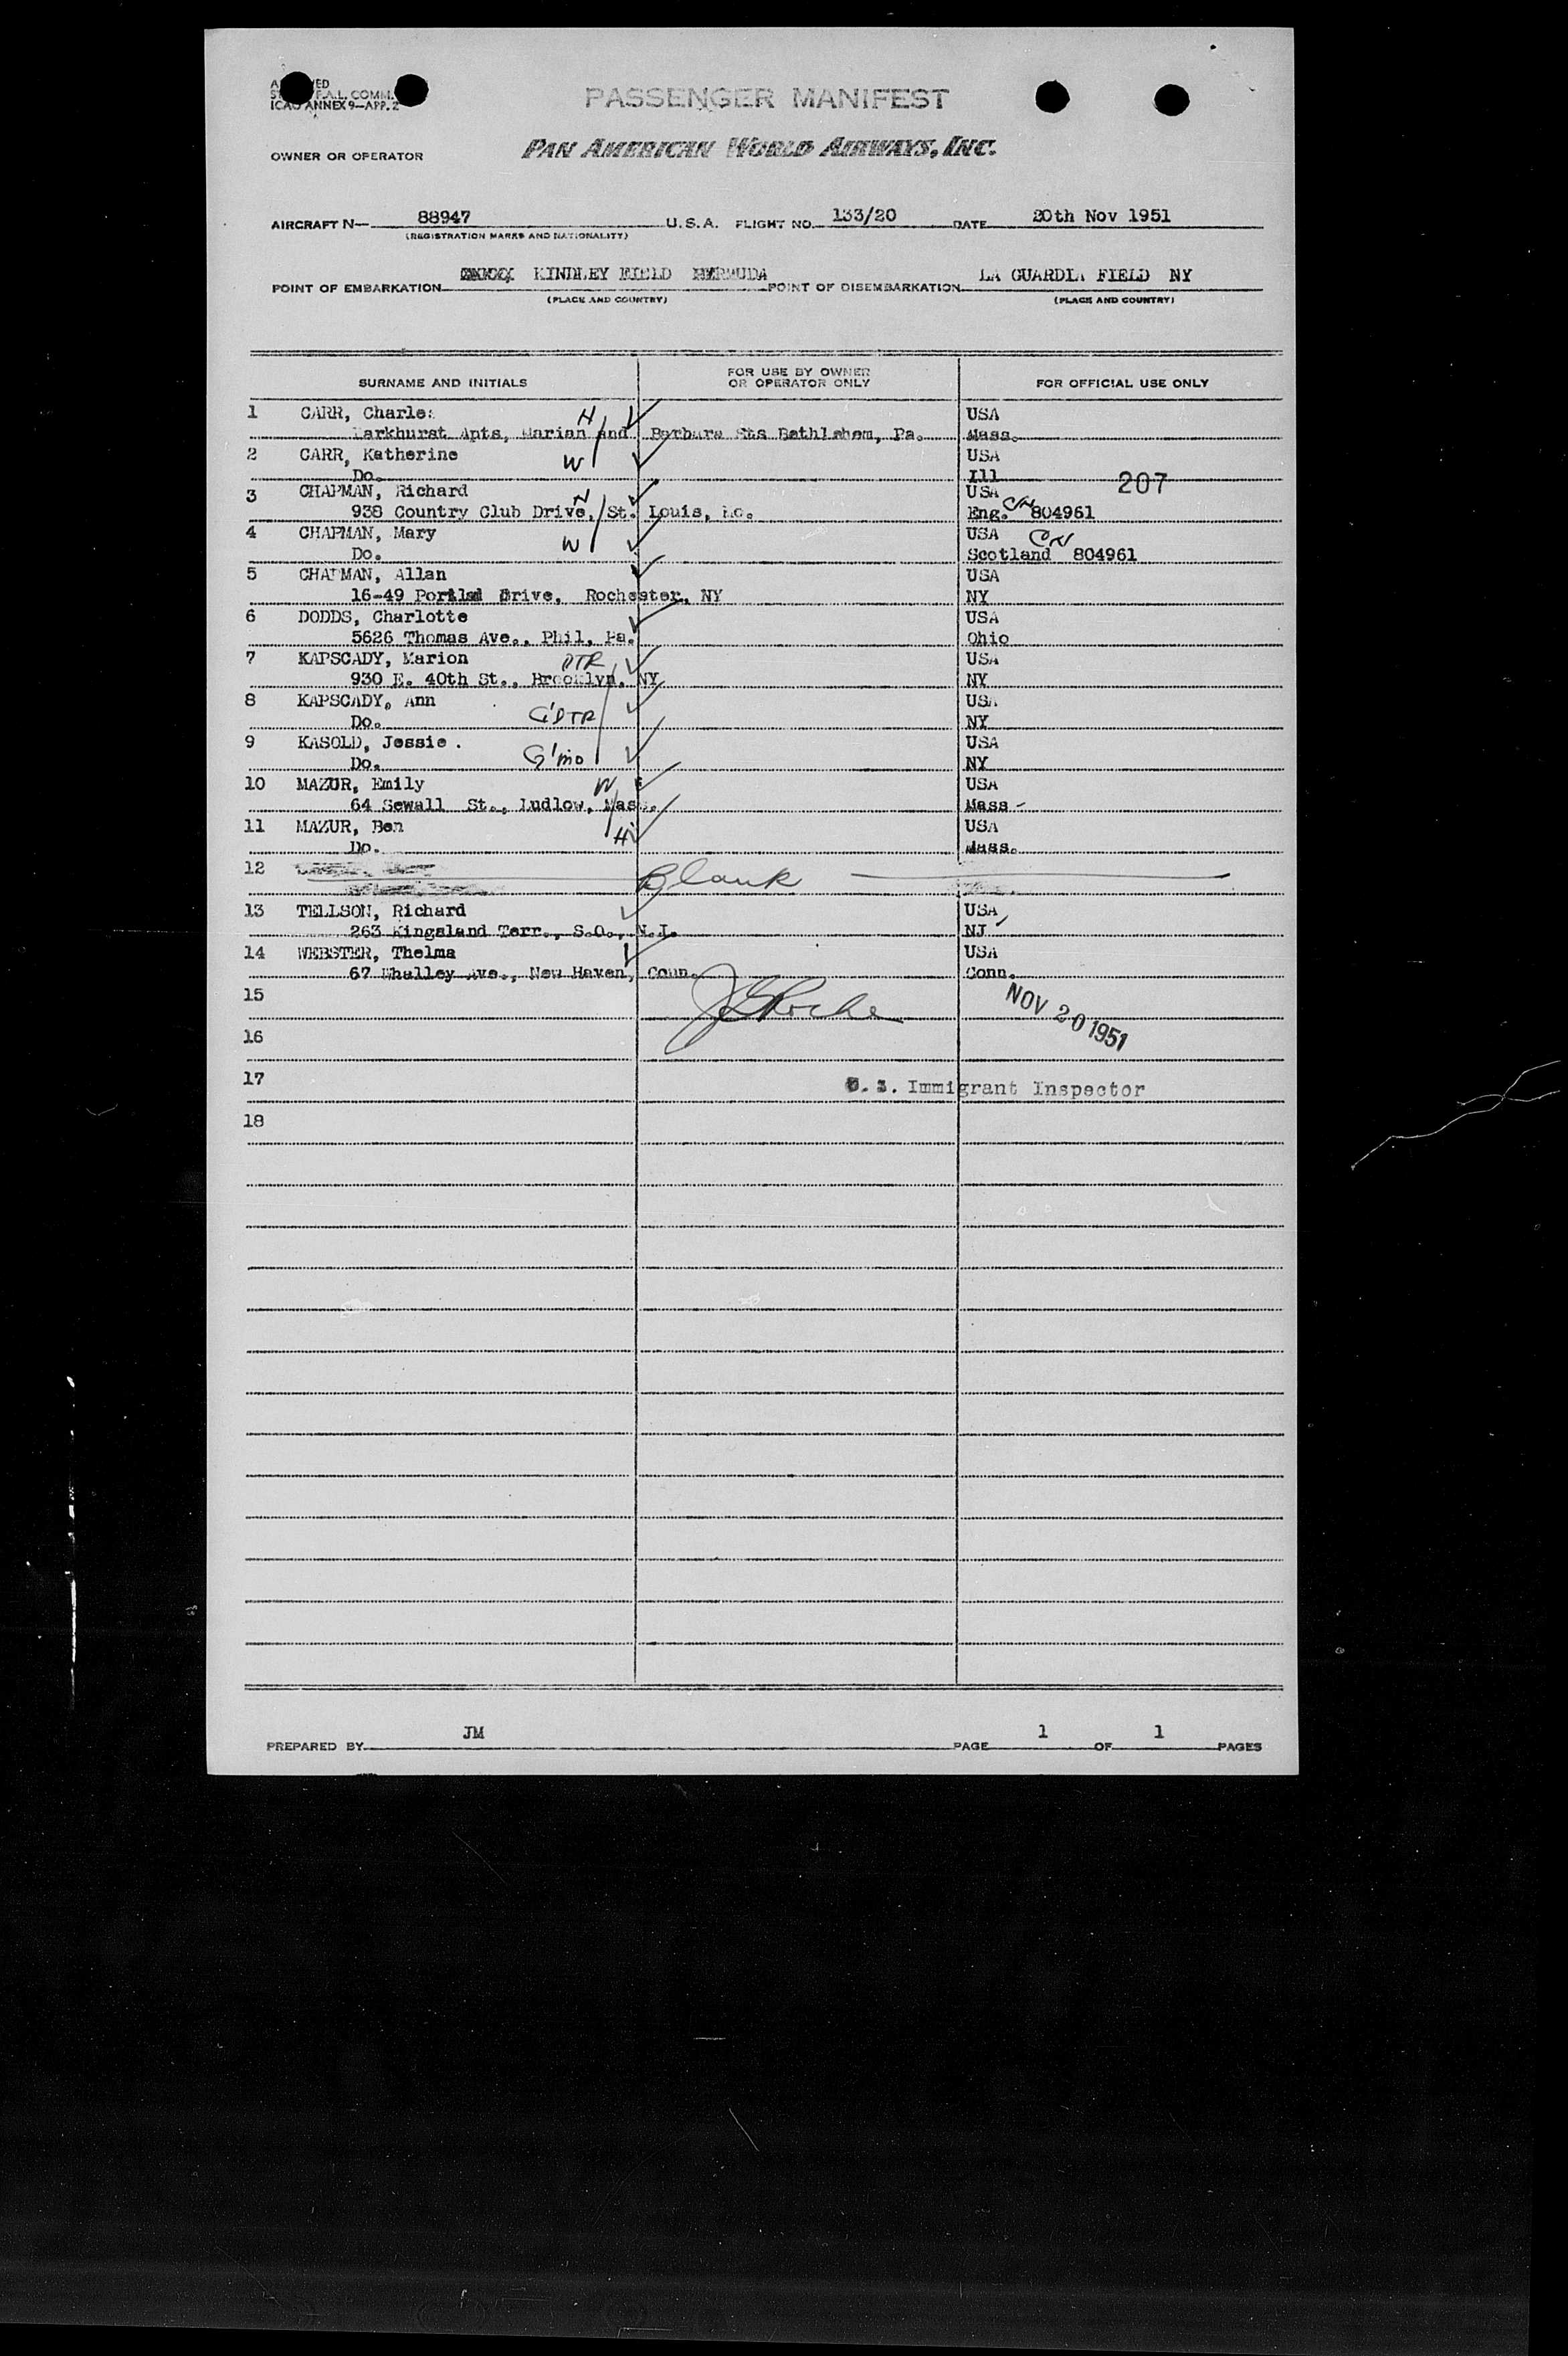 PASSENGER MANIFEST
F.A.L. COMM.
ICAO ANNEX 9—APP. 2
OWNER OR OPERATOR
PAN AMERICAN WORLD AIRWAYS, INC.
AIRCRAFT N— 88947 U.S.A. FLIGHT NO. 133/20 DATE 20th Nov 1951
(REGISTRATION MARKS AND NATIONALITY)
POINT OF EMBARKATION KINDLEY FIELD BERMUDA POINT OF DISEMBARKATION LA GUARDIA FIELD NY
(PLACE AND COUNTRY) (PLACE AND COUNTRY)
SURNAME AND INITIALS FOR USE BY OWNER OR OPERATOR ONLY FOR OFFICIAL USE ONLY
1 CARR, Charles H USA
Apts, Marian and Barbara Sts Bethlehem, Pa. Mass.
2 CARR, Katherine W USA
Do. Ill
207
3 CHAPMAN, Richard H USA
938 Country Club Drive, St. Louis, Mo. Eng. CN 804961
4 CHAPMAN, Mary W USA CN
Do. Scotland 804961
5 CHAPMAN, Allan USA
16-49 Drive, Rochester, NY NY
6 DODDS, Charlotte USA
5626 Thomas Ave., Phil, Pa. Ohio
7 KAPSCADY, Marion DTR USA
930 E. 40th St., Brooklyn, NY NY
8 KAPSCADY, Ann G'DTR USA
Do. NY
9 KASOLD, Jessie. G'mo USA
Do. NY
10 MAZUR, Emily W USA
64 Sewall St., Ludlow, Mass. Mass
11 MAZUR, Ben H USA
Do. Mass.
12 Blank
13 TELLSON, Richard USA
263 Kingsland Terr., S.O., N.J. NJ
14 WEBSTER, Thelma USA
67 Whalley Ave., New Haven, Conn. Conn.
15
NOV 20 1951
16
17 U.S. Immigrant Inspector
18
PREPARED BY JM PAGE 1 OF 1 PAGES